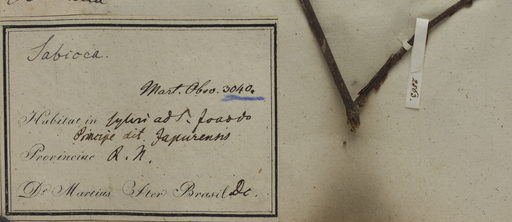 Sabicea.
Mart. Obs. 3040.
Habitat in sylvis ad S. Joao do
Principe dit. Japurensis
Provinciae R. N.
Dr. Martius Iter Brasil Dc.